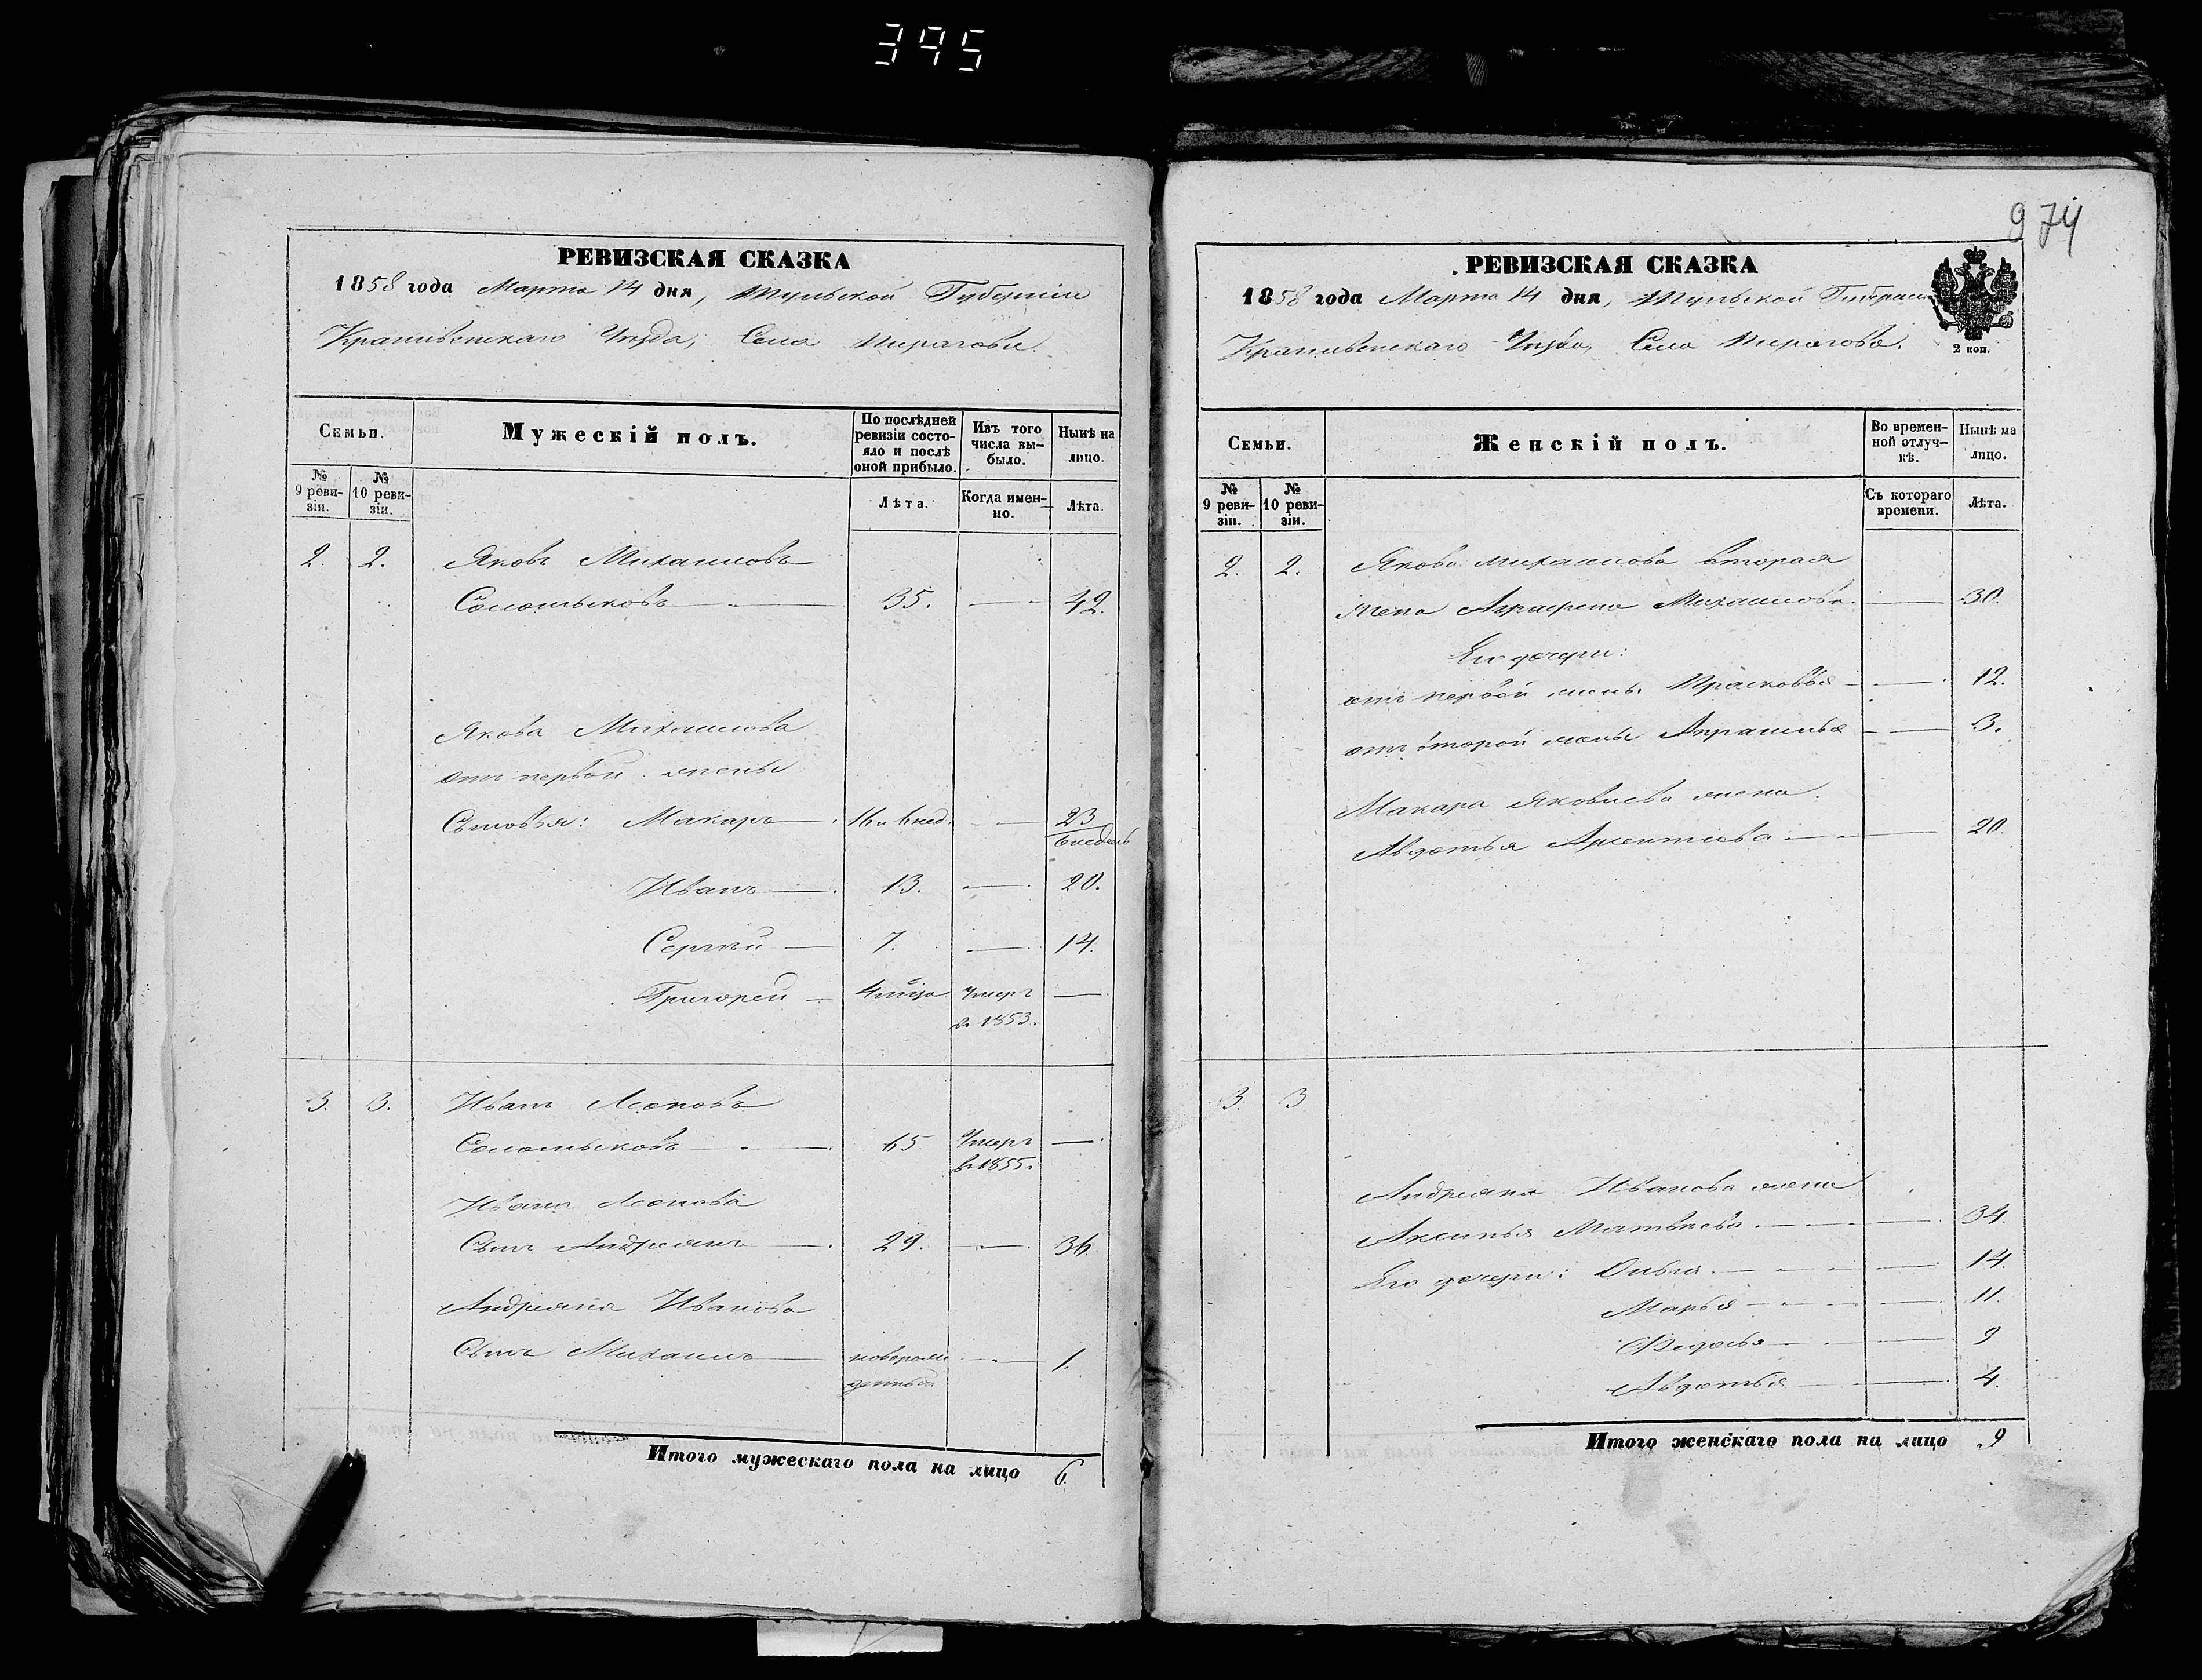 395
РЕВИЗСКАЯ СКАЗКА
1858 года Марта 14 дня, Тульской Губерніи
Крапивенскаго Уезда, Села Пирагова.
Семьи.
Мужескій полъ.
По послѣдней ревизіи состояло и послѣ оной прибыло.
Изъ того числа выбыло.
Нынѣ на лицо.
№ 9 ревизіи.
№ 10 ревизіи.
Лѣта.
Когда именно.
Лѣта.
2. 2. Яковъ Михаиловъ
35. 42.
Якова Михаилова
отъ первой жены
Сыновья: Макаръ 16 и 6 нед. 23 6 недель
Иванъ 13. 20.
Сергѣй 7. 14.
Григорей 4 мца Умеръ в. 1853.
3. 3. Иванъ Леоновъ
65 Умеръ в. 1855.
Ивана Леонова
Сынъ Андреянъ 29. 36
Андреяна Иванова
Сынъ Михаилъ новорожденный 1.
Итого мужескаго пола на лицо 6.
974
РЕВИЗСКАЯ СКАЗКА
1858 года Марта 14 дня, Тульской Губерніи
Крапивенскаго Уезда, Села Пирагова.
2 коп.
Семьи.
Женскій полъ.
Во временной отлучкѣ.
Нынѣ на лицо.
№ 9 ревизіи.
№ 10 ревизіи.
Съ котораго времени.
Лѣта.
2. 2. Якова Михаилова вторая
жена Аграфена Михаилова. 30.
Его дочери:
отъ первой жены Прасковья 12.
отъ второй жены 3.
Макара Яковлева жена
Авдотья 20.
3 3
Андреяна Иванова жена
Аксинья Матвѣева 34.
Его дочери: Ольга 14.
Марья 11.
Федосья 9
Авдотья 4.
Итого женскаго пола на лицо 9